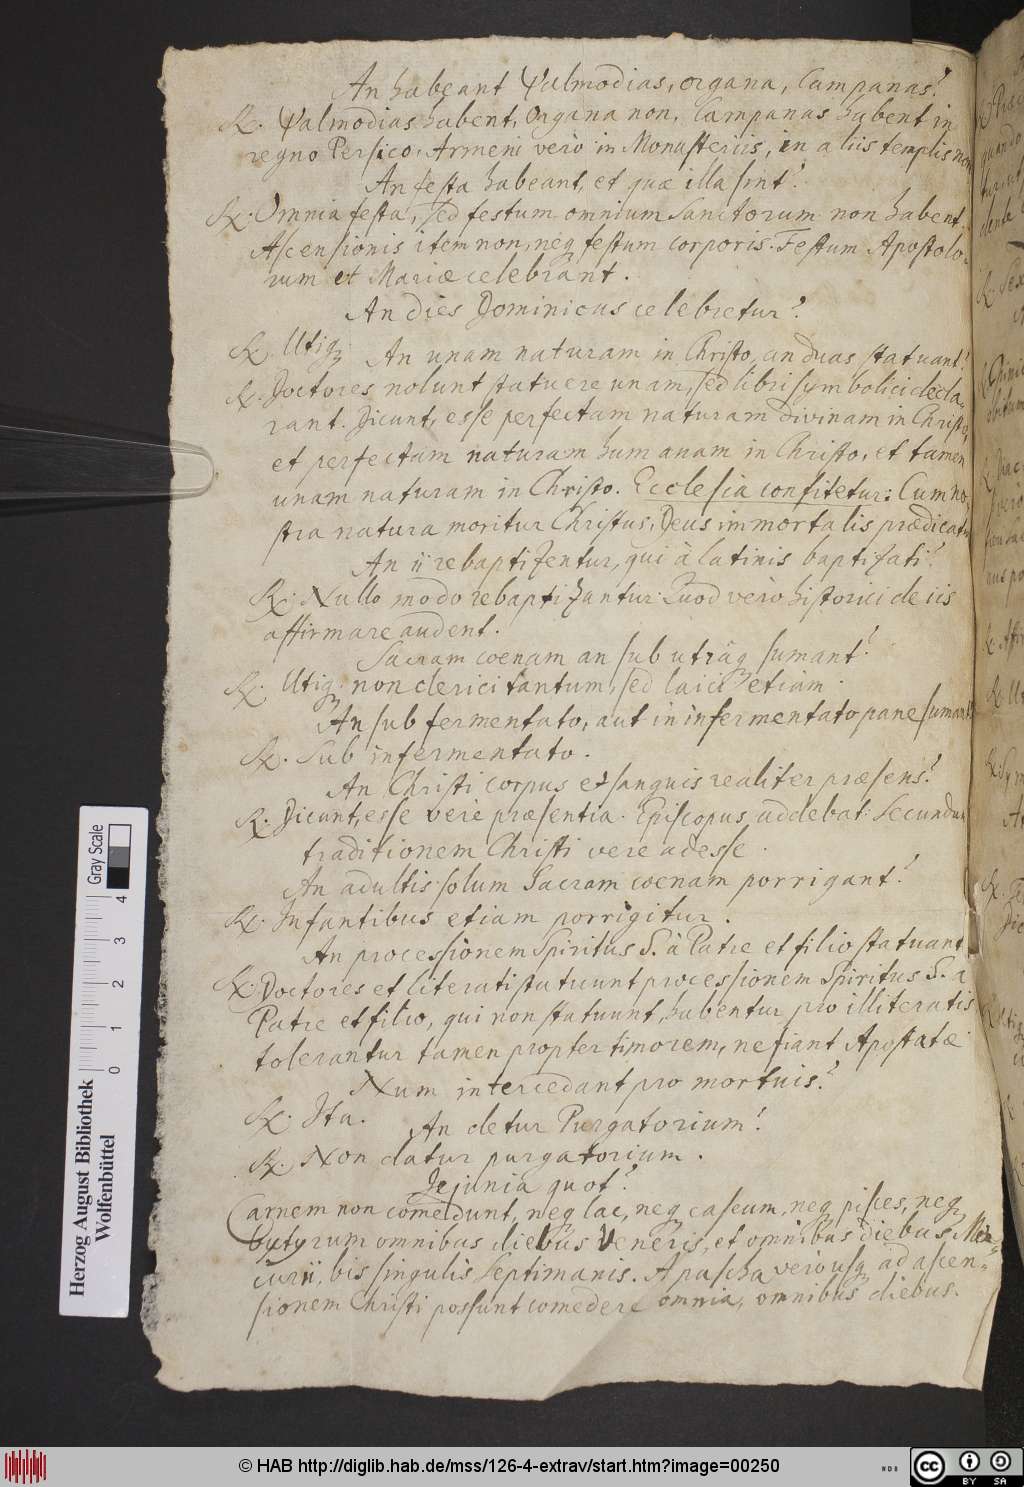 An habeant Psalmodias, organa, Campanas?
R. Psalmodias habent, Organa non, Campanas habent in
regno Persico. Armeni verò in Monasteriis, in aliis templis non
An festa habeant, et quæ illa sint?
R. Omnia festa, sed festum omnium Sanctorum non habent,
Ascensionis item non, neq festum corporis. Festum Apostolo-
rum et Mariæ celebrant.
An dies Dominicus celebretur?
R. Utiq.
An unam naturam in Christo, an duas statuant?
R. Doctores nolunt statuere unam, sed libri symbolici decla-
rant. Dicunt, esse perfectam naturam divinam in Christo,
et perfectam naturam humanam in Christo, et tamen
unam naturam in Christo. Ecclesia confitetur: Cum no-
stra natura moritur Christus, Deus immortalis prædicatur
An ii rebaptizentur, qui à latinis baptisati?
R. Nullo modo rebaptizantur. Quod verò historici de iis
affirmare audent.
Sacram coenam an sub utrâq sumant?
R. Utiq. non clerici tantum, sed laici etiam.
An sub fermentato, aut in infermentato pane sumant?
R. Sub infermentato.
An Christi corpus et sanguis realiter præsens?
R. Dicunt, esse verè præsentia. Episcopus addebat: Secundum
traditionem Christi vere adesse.
An adultis solum Sacram coenam porrigant?
R. Infantibus etiam porrigitur.
An processionem Spiritus S. à Patre et filio statuant
R. Doctores et literati statuunt processionem Spiritus S. a
Patre et filio, qui non statuunt, habentur pro illiteratis
tolerantur tamen propter timorem, ne fiant Apostatæ
Num intercedant pro mortuis?
R. Ita.
An detur Purgatorium?
R. Non datur purgatorium.
Jejunia quot?
Carnem non comedunt, neq lac, neq caseum, neq pisces, neq
butyrum omnibus diebus Veneris, et omnibus diebus Mer-
curii, bis singulis Septimanis. A pascha verò usq ad ascen-
sionem Christi possunt comedere omnia, omnibus diebus.
Herzog August Bibliothek
Wolfenbüttel
Gray Scale
0 1 2 3 4
© HAB http://diglib.hab.de/mss/126-4-extrav/start.htm?image=00250
WDB
cc BY SA